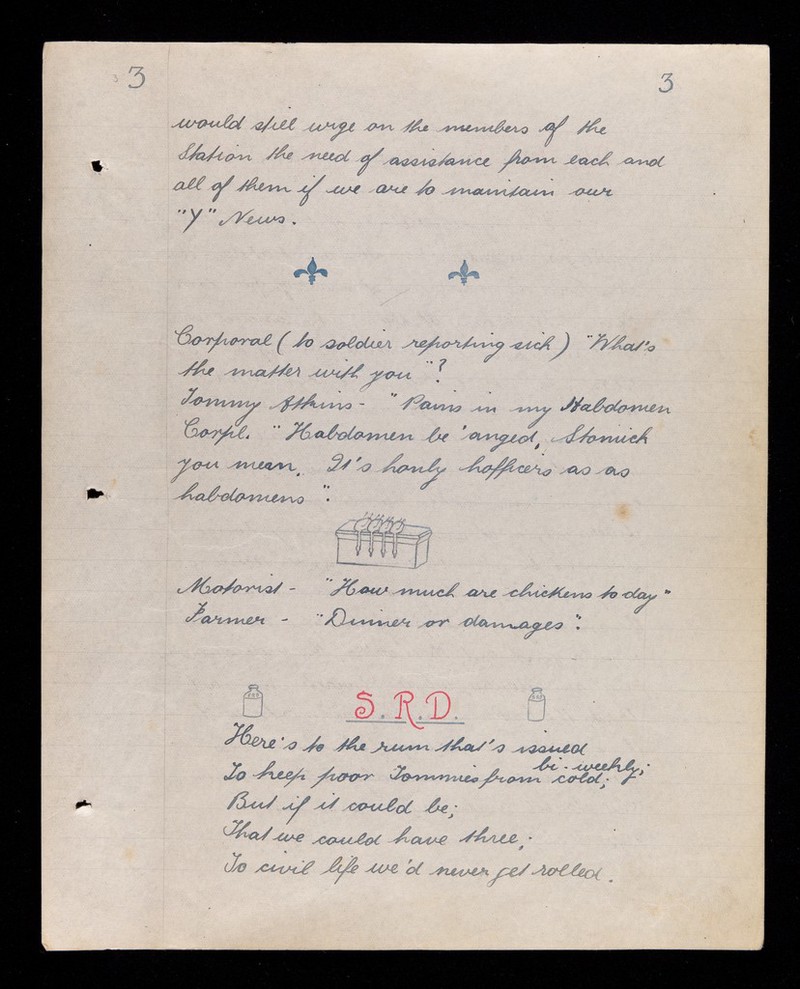 3
3
would still urge on the members of the
Station the need of assistance from each and
all of them if we are to maintain our
"Y" News.
Corporal ( to soldier reporting sick ) "What's
the matter with you"?
Tommy Atkins - "Pains in my Habdomen
Corpl. "Habdomen be 'anged, Stomick
you mean. It's honly hofficers as as
habdomens".
Motorist - "How much are chickens to day"
Farmer - "Dinner or damages".
S.R.D.
Here's to the rum that's issued
bi-weekly;
To keep poor Tommies from cold;
But if it could be;
That we could have three;
To civil life we'd never get rolled.